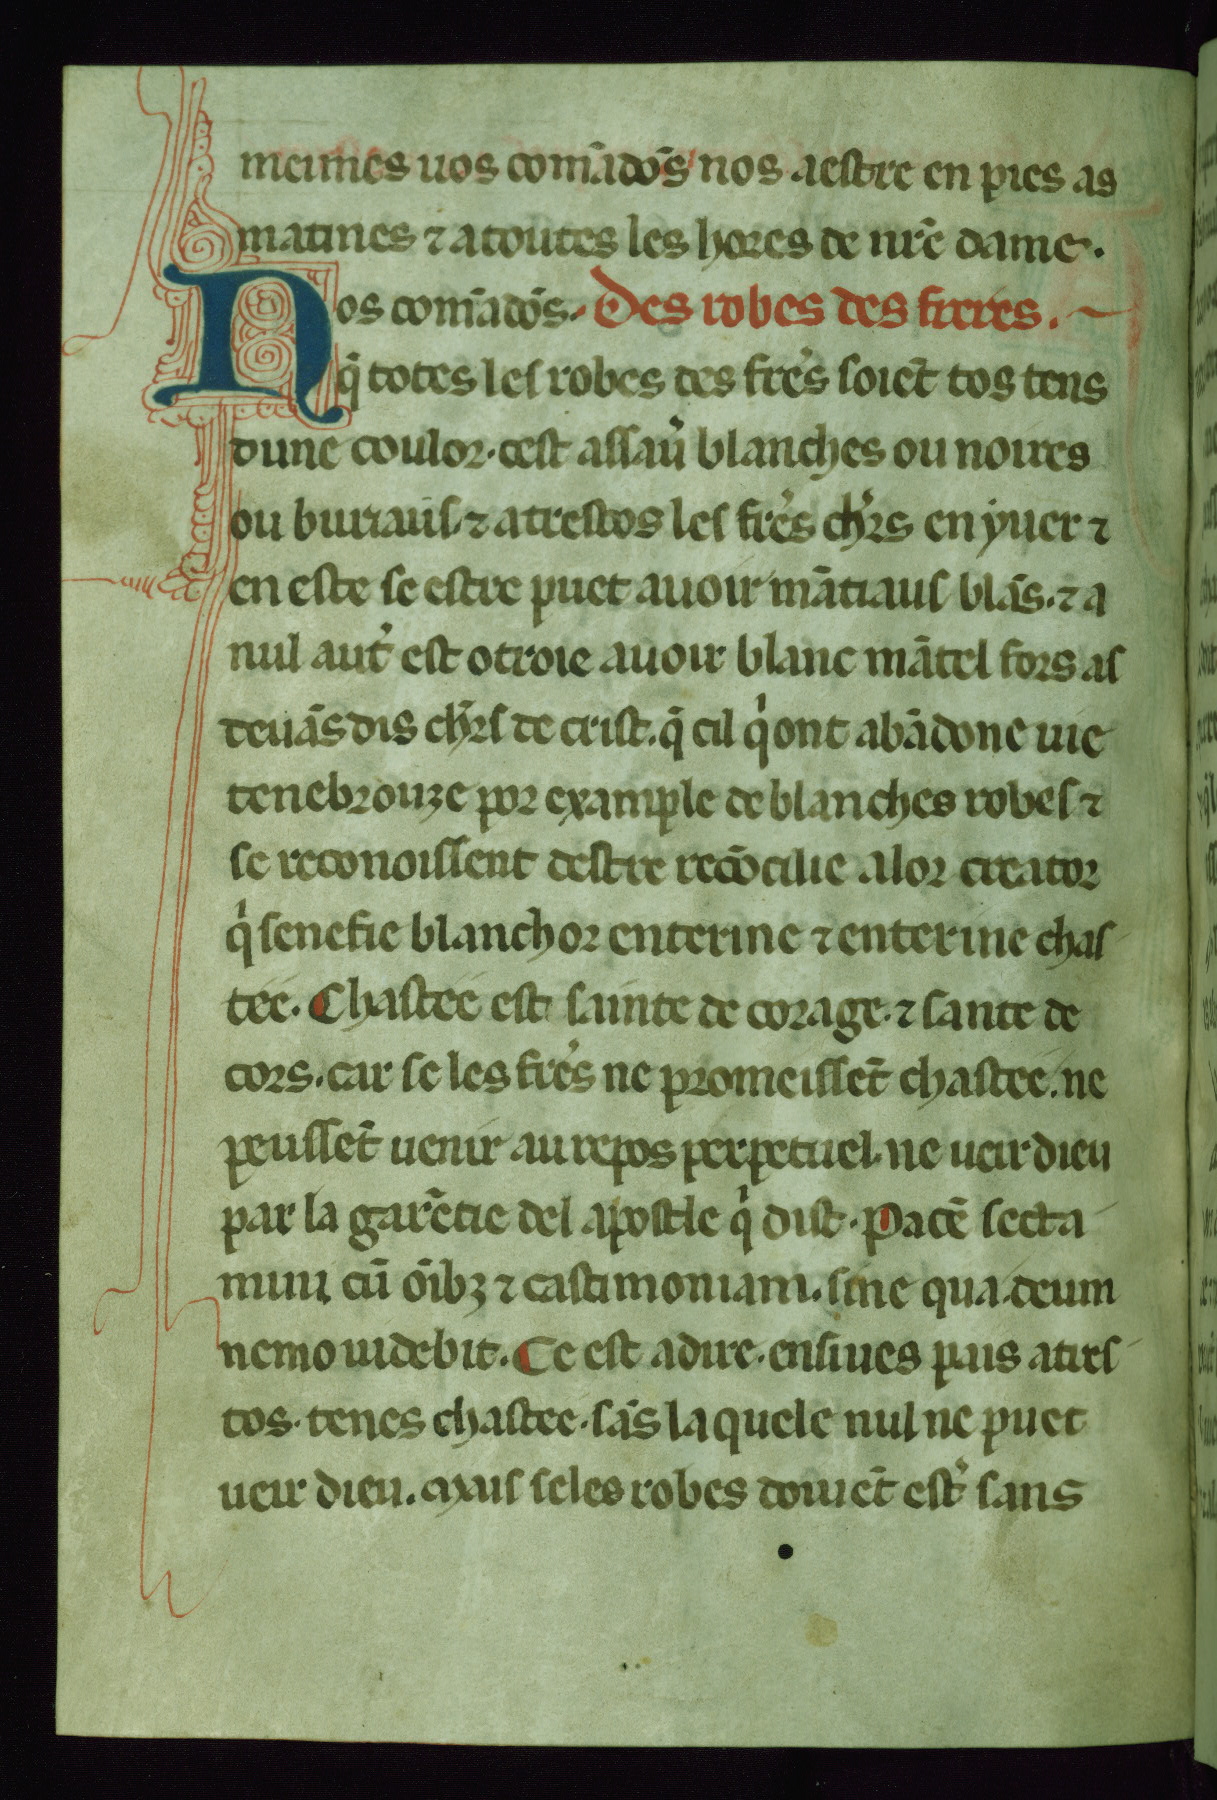 meimes uos com̄adōs nos aestre en pies as
matines ⁊ a toutes les hores de nr̄e dame.
Nos com̄adōs. Des robes des freres.
q̄ totes les robes des fre᷒s soiēt tos tens
dune coulor. cest assau᷒ blanches ou noires
ou buriaus. ⁊ a trestos les fre᷒s ch᷒rs en yuer ⁊
en este se estre puet auoir mātiaus blās. ⁊ a
nul aut᷒ est otroie auoir blanc mātel fors as
deuās dis ch᷒rs de crist. q̄ cil qͥ ont abādone uie
tenebrouze por example de blanches robes ⁊
se reconoissent destre recōcilie a lor creator
qͥ senefie blanchor enterine ⁊ enterine chas
tee. Chastee est sainte de corage. ⁊ sante de
cors. car se les fre᷒s ne promeissēt chastee. ne
peussēt uenir au repos perpetuel. ne ueir dieu
par la garētie del apostle qͥ dist. Pacē secta
mini cū oīb⁊ ⁊ castimoniam. sine qua deum
nemo uidebit. Ce est adire. ensiues pais a tres
tos. tenes chastee. sās la quele nul ne puet
ueir dieu. Mais se les robes doiuēt est᷒ sans